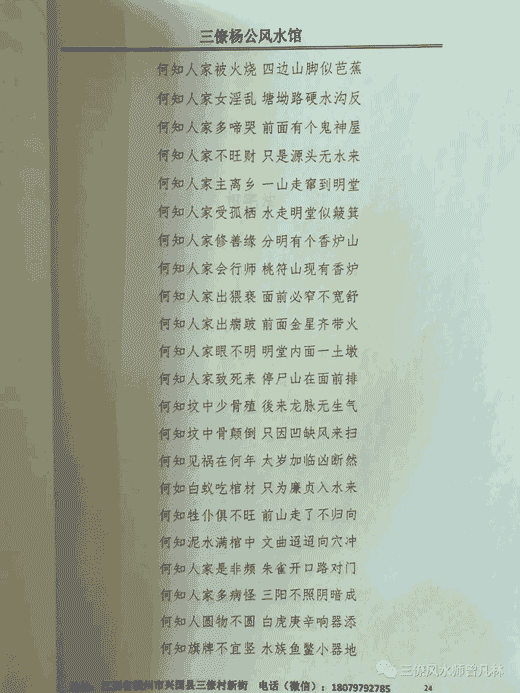 三僚杨公风水馆
何知人家被火烧 四边山脚似芭蕉
何知人家女淫乱 塘坳路硬水沟反
何知人家多啼哭 前面有个鬼神屋
何知人家不旺财 只是源头无水来
何知人家主离乡 一山走窜到明堂
何知人家受孤栖 水走明堂似簸箕
何知人家修善缘 分明有个香炉山
何知人家会行师 桃符山现有香炉
何知人家出猥亵 面前必窄不宽舒
何知人家出瘸跛 前面金星齐带火
何知人家眼不明 明堂内面一土墩
何知人家致死来 停尸山在面前排
何知坟中少骨殖 後来龙脉无生气
何知坟中骨颠倒 只因凹缺风来扫
何知见祸在何年 太岁加临凶断然
何如白蚁吃棺材 只为廉贞入水来
何知牲仆俱不旺 前山走了不归向
何知泥水满棺中 文曲迢迢向穴冲
何知人家是非频 朱雀开口路对门
何知人家多病怪 三阳不照阴暗成
何知人圆物不圆 白虎庚辛响器添
何知旗牌不宜竖 水族鱼鳖小器地
州市兴国县三僚村新街 电话（微信）：18079792785 24
三僚风水师曾凡林